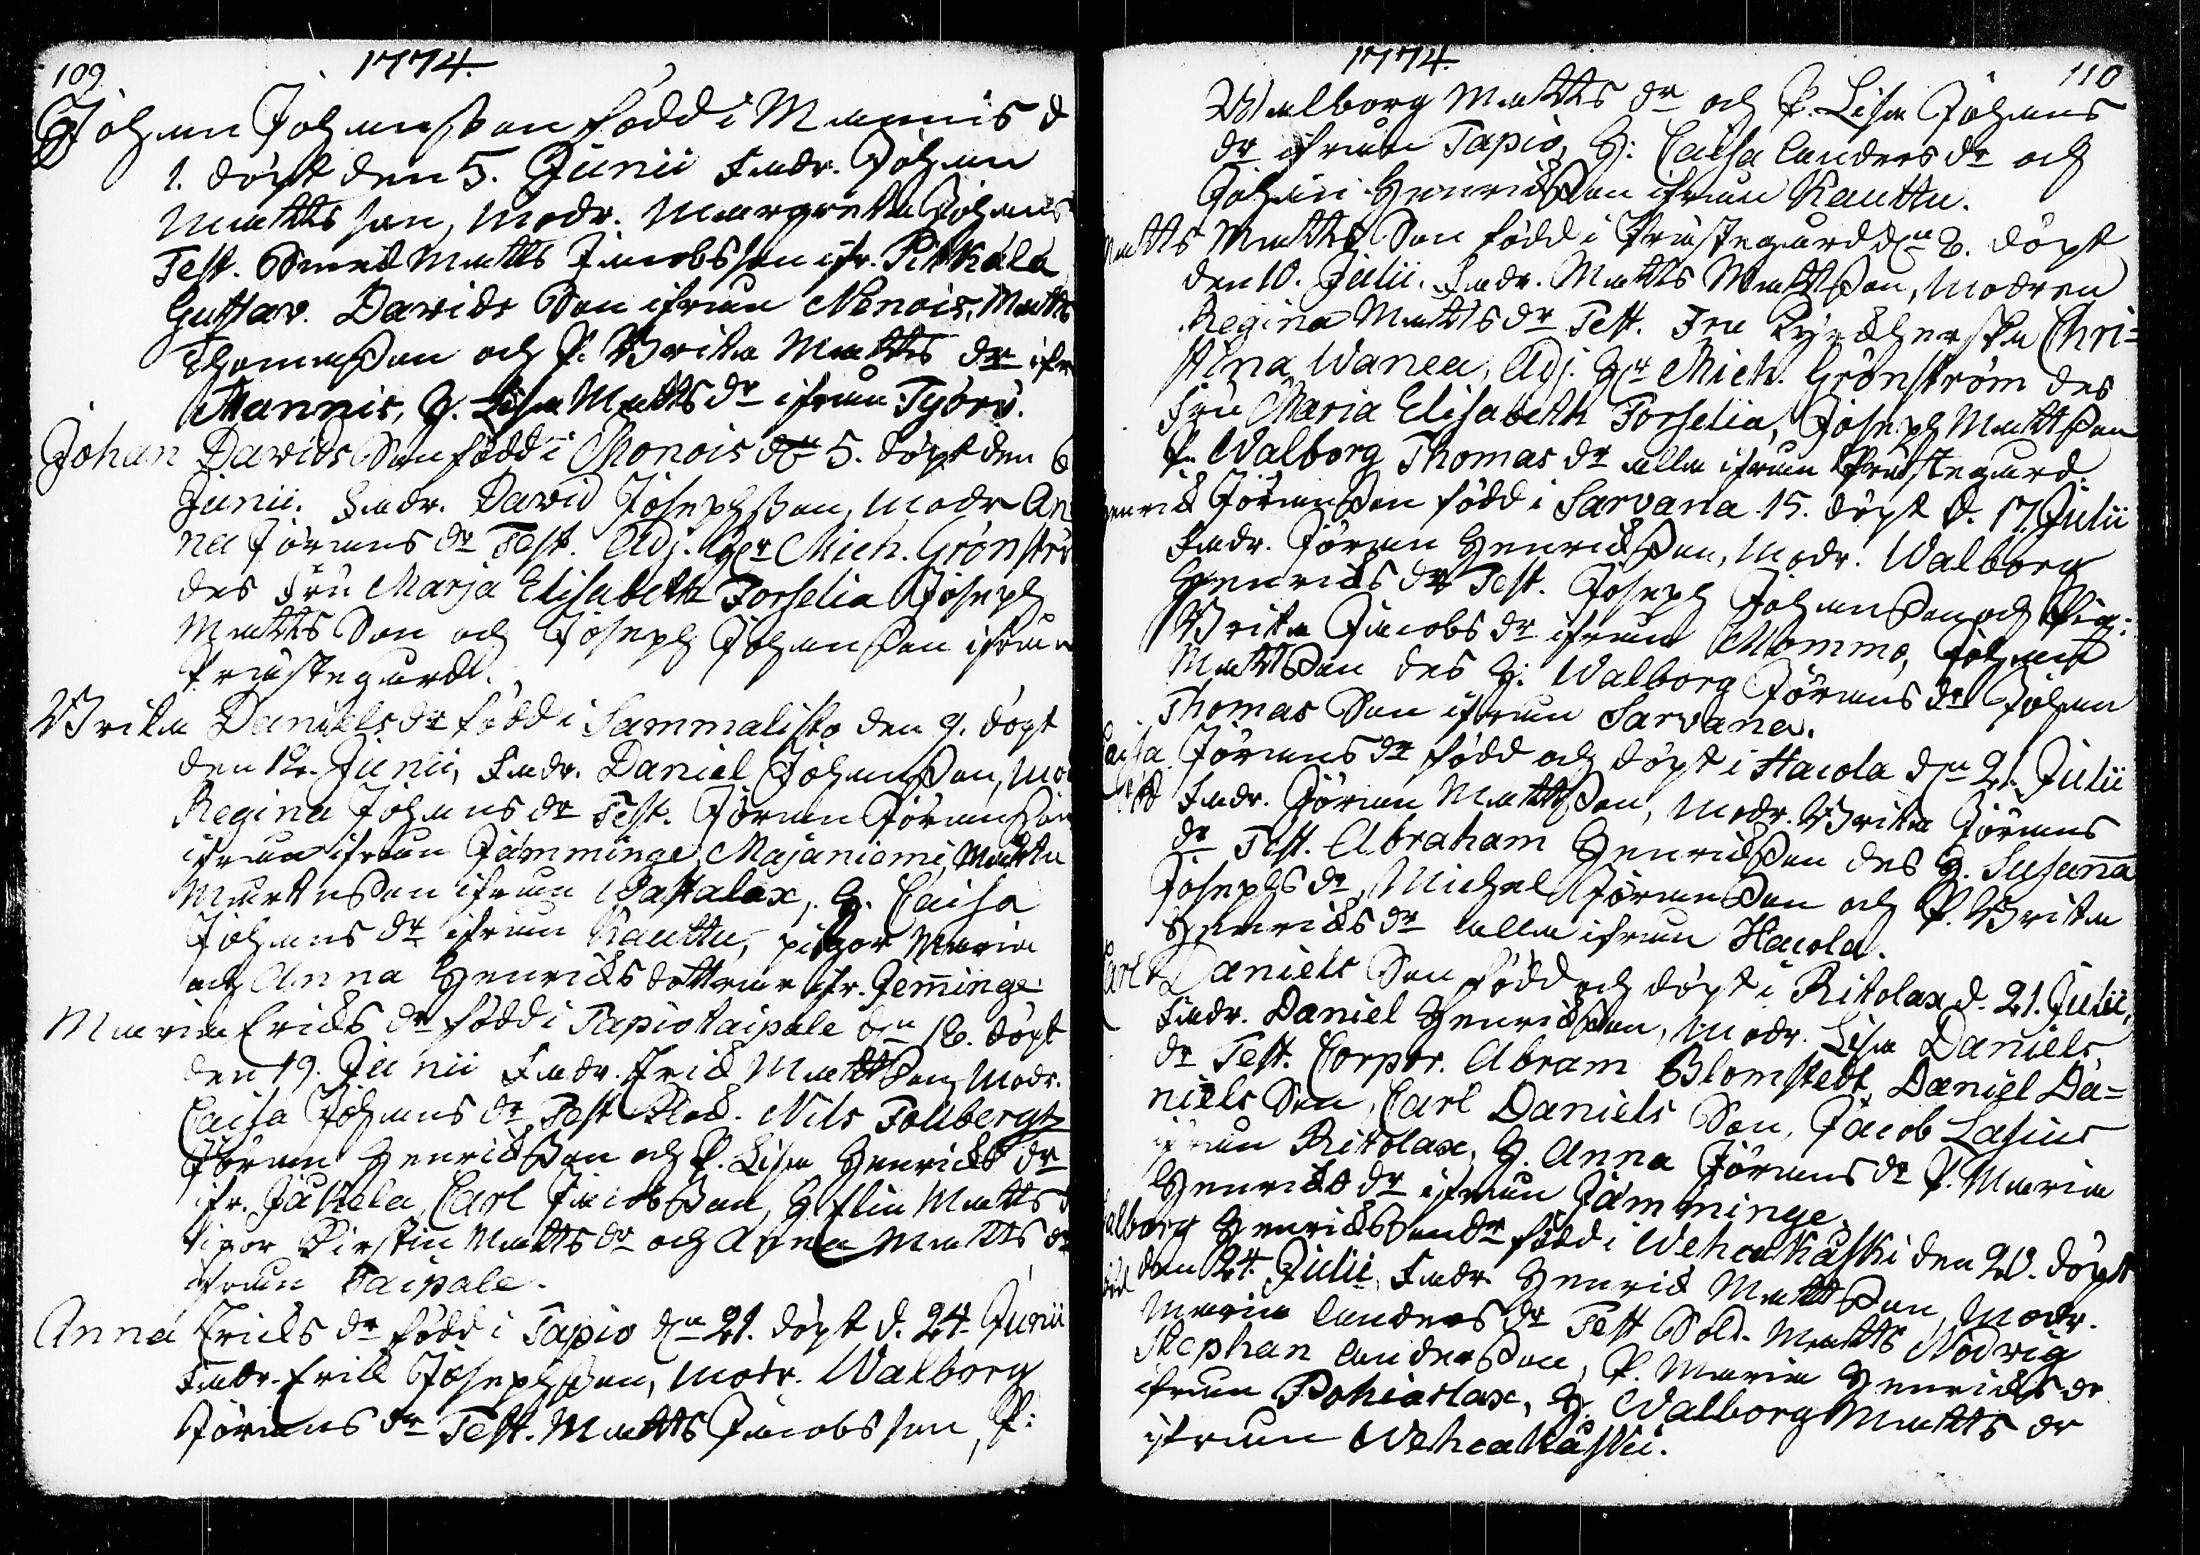 109
1774.
Johan Johansson född i Mannis d
1. döpt den 5. Junii Fadr. Johan
Matts son, Modr. Margreta Johans
Test. Smed Matts Jacobsson ifr. Pitkälä
Gustav. Davids Son ifrån Monois, Matts
Thomasson och P. Brita Matts dr ifr
Mannis, H. Lisa Matts dr ifrån Työrü.
Johan Davids Son född i Monois dn 5. döpt den 6
Junii. Fadr. David Josephsson, Modr An
na Jörans dr Test. Adj. Hr Mich. Grönströ
des Fru Marja Elisabeth Forselia Joseph
Matts Son och Joseph Johansson ifrån
Prästegard.
Brita Daniels dr född i Sammalisto den 9. döpt
den 12. Junii, Fadr. Daniel Johansson, Mo
Regina Johans dr Test. Jöran Jöransson
ifrån ifrån Jämminge Majaniemi, Mårten
Mårtensson ifrån Wastalax, H. Caisa
Johans dr ifrån Kauttu, pigor Maria
och Anna Henricks döttrar ifr. Jem̄inge
Maria Ericks dr född i Tapiotaipale dn 18. döpt
den 19. Junii Fadr. Erick Mattsson, Modr.
Caisa Johans dr, Test Klock. Nils Follbergz
Jöran Henricksson och P. Lisa Henricks dr
ifr. Jäkela, Carl Jacobsson, H. Elin Matts d
Pigor Kirstin Matts dr och Anna Matts dr
ifrån Taipale.
Anna Ericks dr född i Tapio dn 21. döpt d. 24. Junii
Fadr. Erick Josephsson, Modr. Walborg
Jörans dr Test. Matts Jacobsson, P:
1774.
110
Walborg Matts dr och P. Lisa Johans
dr ifrån Tapio, H: Caisa Anders dr och
Johan Henricksson ifrån Kauttu.
Matts Matts Son född i Prästegard dn 8. döpt
den 10. Julii. Fadr. Matts Mattsson, Modren
Regina Matts dr Test. Fru Kyrckherskan Chri=
stina Wanæa, Adj. Hr Mich. Grönström des
Fru Maria Elisabeth Forselia, Joseph Mattsson
P. Walborg Thomas dr alla ifrån Prästegard.
Henrick Jöransson född i Sarvana 15. döpt d. 17. Julii
Fadr. Jöran Henricksson, Modr. Walborg
Henricks dr Test. Joseph Johansson och Pig:
Brita Jacobs dr ifrån Mommo, Johan
Mattsson des H: Walborg Jörans dr Johan
Thomas Son ifrån Sarvana.
Caisa Jörans dr född och döpt i Hacola dn 21. Julii
Fadr. Jöran Mattsson, Modr. Brita Jörans
dr Test. Abraham Henricksson des H. Susan̄a
Josephs dr, Michel Jöransson och P. Brita
Henricks dr alla ifrån Hacola.
Carl Daniels Son född och döpt i Ritolax d. 21. Julii,
Fadr. Daniel Henricksson, Modr. Lisa Daniels
dr Test. Corpor. Abram Blomstedt, Daniel Da=
niels Son, Carl Daniels Son, Jacob Lasius
ifrån Ritolax, H. Anna Jörans dr P. Maria
Henricks dr ifrån Jämminge
Walborg Henricksson dr född i Wehcakäski den 20. döpt
den 24. Julii, Fadr. Henrick Mattsson, Modr.
Maria Anders dr Test Sold. Matts Nodwig
Stephan Andersson, P. Maria Henricks dr
ifrån Pohiaslax, H. Walborg Matts dr
ifrån Wehcakäski.